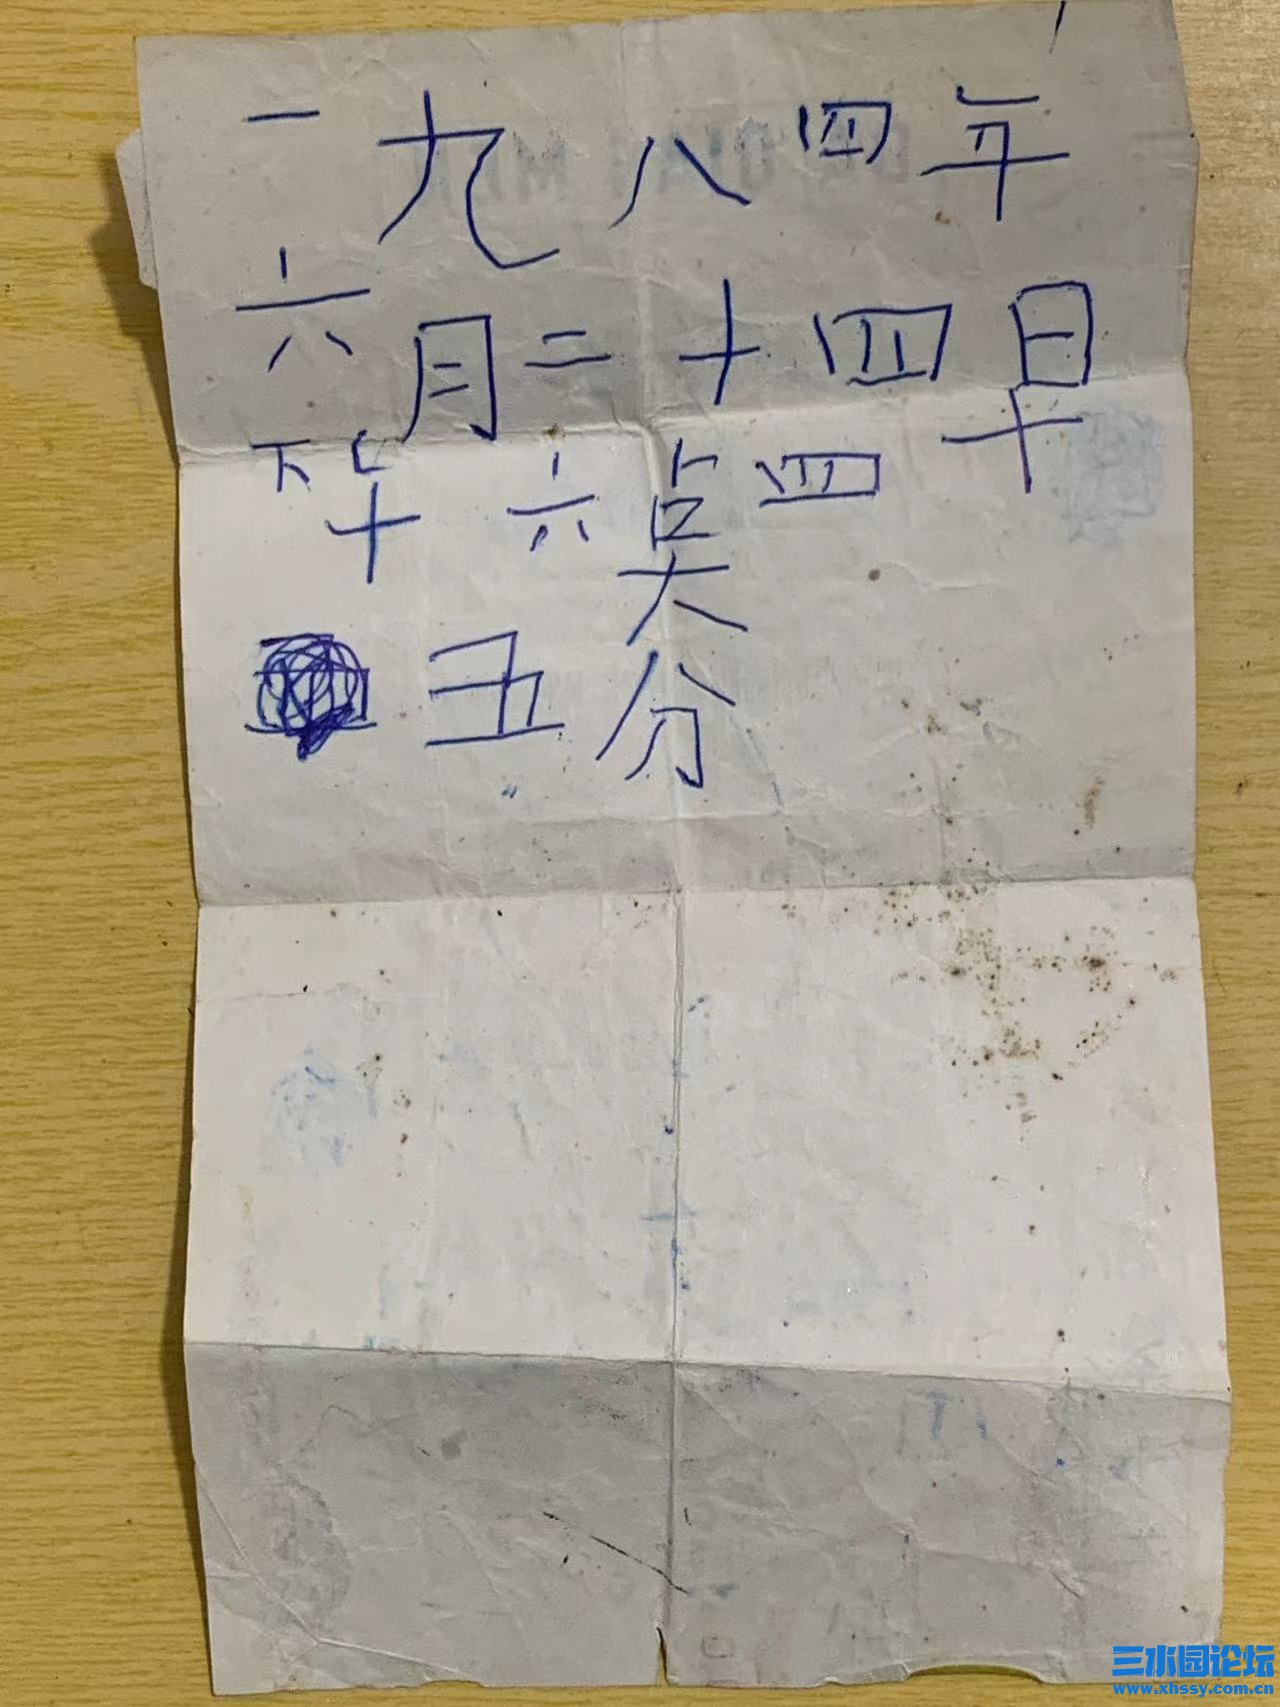 一九八四年
六月二十四日
下午六奌四十
五分
三水园论坛
www.xhssy.com.cn